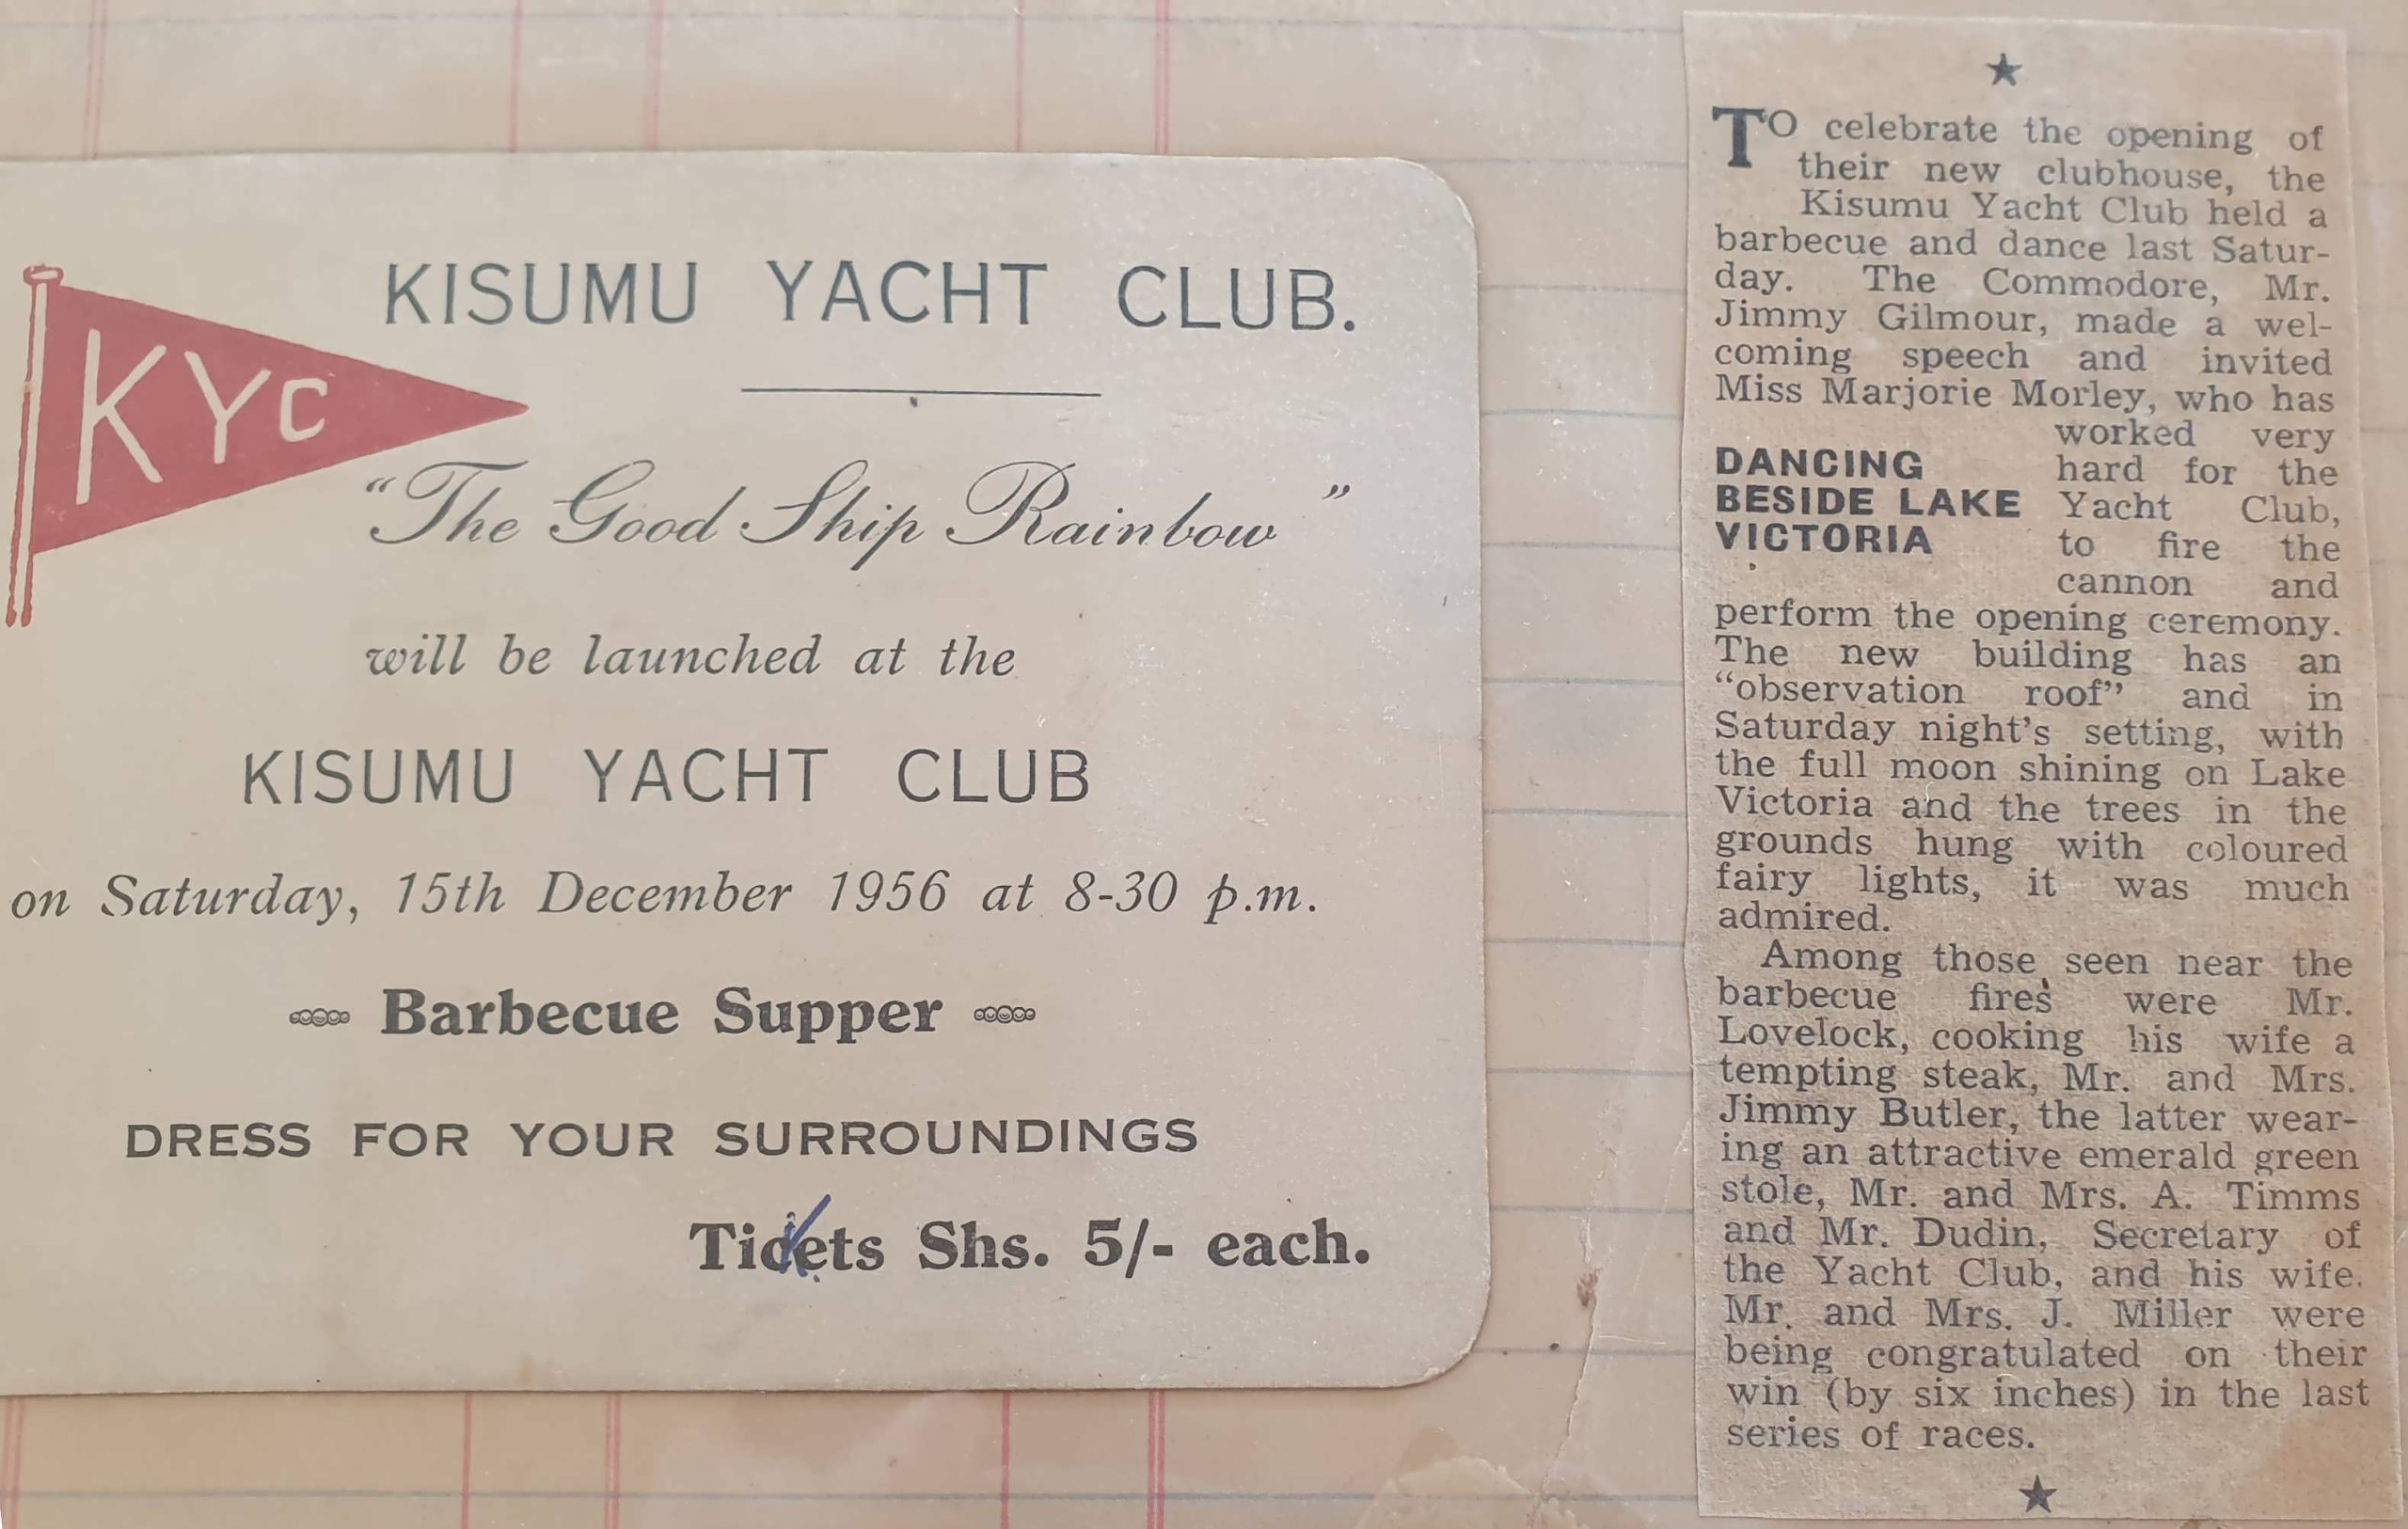 KYC
KISUMU YACHT CLUB.
“The Good Ship Rainbow”
will be launched at the
KISUMU YACHT CLUB
on Saturday, 15th December 1956 at 8-30 p.m.
Barbecue Supper
DRESS FOR YOUR SURROUNDINGS
Tickets Shs. 5/- each.
★
TO celebrate the opening of
their new clubhouse, the
Kisumu Yacht Club held a
barbecue and dance last Satur-
day. The Commodore, Mr.
Jimmy Gilmour, made a wel-
coming speech and invited
Miss Marjorie Morley, who has
worked very
hard for the
Yacht Club,
to fire the
cannon and
DANCING
BESIDE LAKE
VICTORIA
perform the opening ceremony.
The new building has an
“observation roof” and in
Saturday night's setting, with
the full moon shining on Lake
Victoria and the trees in the
grounds hung with coloured
fairy lights, it was much
admired.
Among those seen near the
barbecue fires were Mr.
Lovelock, cooking his wife a
tempting steak, Mr. and Mrs.
Jimmy Butler, the latter wear-
ing an attractive emerald green
stole, Mr. and Mrs. A. Timms
and Mr. Dudin, Secretary of
the Yacht Club, and his wife.
Mr. and Mrs. J. Miller were
being congratulated on their
win (by six inches) in the last
series of races.
★